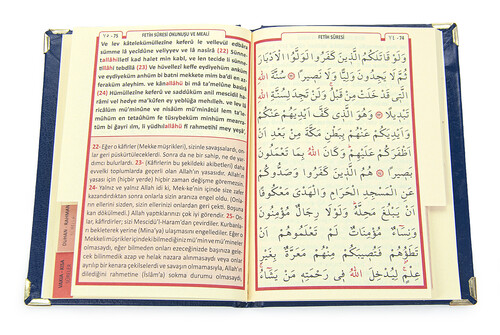 ٧٥ - 75 FETİH SÛRESİ OKUNUŞU ve MEALİ
Ve lev kâtelekümüllezîne keferû le vellevül edbâra
sümme lâ yecidûne veliyyev ve lâ nasîrâ (22) Sünne-
tallâhilletî kad halet min kabl, ve len tecide li sünne-
tillâhi tebdîlâ (23) Ve hüvellezî keffe eydiyehüm anküm
ve eydiyeküm anhüm bi batni mekkete mim ba'di en az-
feraküm aleyhim. ve kânallâhü bi mâ ta'melûne basîrâ
(24) Hümüllezîne keferû ve saddûküm anil mescidil ha-
râmi vel hedye ma'kûfen ey yeblüğa mehılleh. ve lev lâ
ricâlüm mü'minûne ve nisâüm mü'minâtül lem ta'le-
mûhüm en tetaûhüm fe tüsıybeküm minhüm mearra-
tüm bi ğayri ılm, li yüdhılallâhü fî rahmetihî mey yeşâ',
22- Eğer o kâfirler (Mekke müşrikleri), sizinle savaşsalardı, on-
lar geri püskürtüleceklerdi. Sonra da ne bir sahip, ne de yar-
dımcı bulurlardı. 23- (Kâfirlerin bu şekildeki akıbetleri) daha
evvelki toplumda geçerli olan Allah'ın yasasıdır. Allah'ın
yasası için (hiçbir yerde) hiçbir zaman değişme göremezsin.
24- Yalnız ve yalnız Allah idi ki, Mekke'nin içinde size zafer
kazandırdıktan sonra onlarla sizin aranıza engel oldu. (Onla-
rın ellerini sizden, sizin ellerinizi onlardan geri çekti. Boşuna
kan dökülmedi.) Allah yaptıklarınızı çok iyi görendir. 25- On-
lar, kâfirdirler; sizi Mescidü'l-Haram'dan çevirdiler. Kurbanla-
rın bekleterek yerine (Mina'ya) ulaşmasını engellediler. Eğer o
Mekkeli müşrikler içindeki bilmediğiniz mü'min ve mü'mineler
olmasaydı, eğer bilmeden onları ezeceğinizde başınıza gele-
cek bilinmedik azap ve helak nazara alınmasaydı veya onlar
ayrılıp bir kenara çekilselerdi ve savaşın olmamasıyla, Allah'ın
dilediğini rahmetine (İslâm'a) sokma durumu olmasaydı,
FETİH SÛRESİ ٧٤ - 74
وَلَوْ قَاتَلَكُمُ الَّذِينَ كَفَرُوا لَوَلَّوُا الْاَدْبَارَ
ثُمَّ لَا يَجِدُونَ وَلِيًّا وَلَا نَصِيرًا سُنَّةَ اللّٰهِ
الَّتِى قَدْ خَلَتْ مِنْ قَبْلُ وَلَنْ تَجِدَ لِسُنَّةِ اللّٰهِ
تَبْدِيلًا وَهُوَ الَّذِى كَفَّ اَيْدِيَهُمْ عَنْكُمْ
وَاَيْدِيَكُمْ عَنْهُمْ بِبَطْنِ مَكَّةَ مِنْ بَعْدِ اَنْ
اَظْفَرَكُمْ عَلَيْهِمْ وَكَانَ اللّٰهُ بِمَا تَعْمَلُونَ
بَصِيرًا هُمُ الَّذِينَ كَفَرُوا وَصَدُّوكُمْ
عَنِ الْمَسْجِدِ الْحَرَامِ وَالْهَدْىَ مَعْكُوفًا
اَنْ يَبْلُغَ مَحِلَّهُ وَلَوْلَا رِجَالٌ مُؤْمِنُونَ
وَنِسَاءٌ مُؤْمِنَاتٌ لَمْ تَعْلَمُوهُمْ اَنْ
تَطَؤُهُمْ فَتُصِيبَكُمْ مِنْهُمْ مَعَرَّةٌ بِغَيْرِ
عِلْمٍ لِيُدْخِلَ اللّٰهُ فِى رَحْمَتِهِ مَنْ يَشَاءُ
DUHAN - RAHMAN
VAKIA - KISA